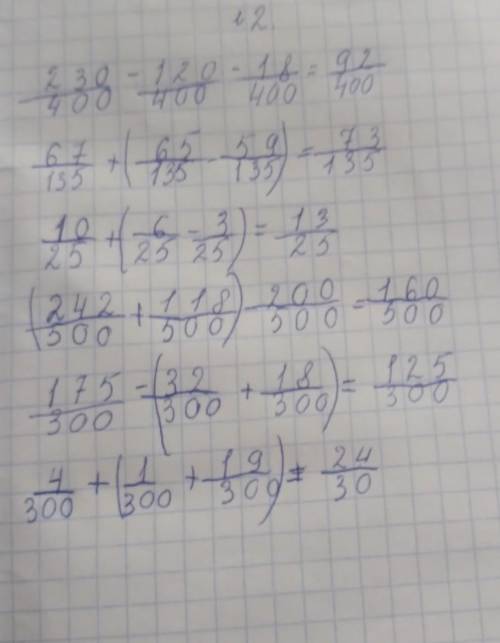 №2.
230/400 - 120/400 - 18/400 = 92/400
67/135 + (65/135 - 59/135) = 73/135
10/25 + (6/25 - 3/25) = 13/25
(242/500 + 118/500) - 200/500 = 160/500
175/300 - (32/300 + 18/300) = 125/300
4/300 + (1/300 + 19/300) = 24/30